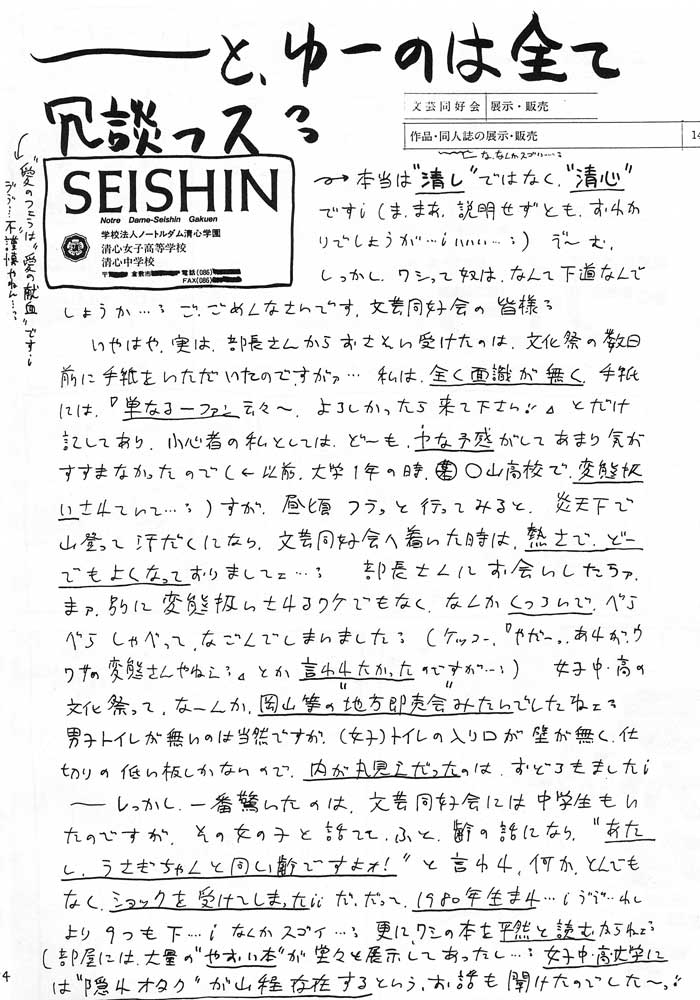 ――と、ゆーのは全て
冗談っス〜
文芸同好会 展示・販売
作品・同人誌の展示・販売 14
な、なんかスゴい…〜
"愛のフェラは"愛の献血"です…i
ううっ…不謹慎やねん…〜
SEISHIN
Notre Dame-Seishin Gakuen
学校法人ノートルダム清心学園
清心女子高等学校
清心中学校
〒 倉敷市 電話(086)
FAX(086)
→本当は"清し"ではなく、"清心"
ですi(ま、まあ、説明せずとも、おわか
りでしょうが…iいいい…〜) う〜む、
しっかし、ワシって奴は、なんて下道なんで
しょうか…〜 ご、ごめんなさいです、文芸同好会の皆様〜
いやはや、実は、部長さんからおさそい受けたのは、文化祭の数日
前に手紙をいただいたのですがァ… 私は、全く面識が無く、手紙
には、『単なる一ファン云々〜、よろしかったら来て下さい!!』とだけ
記してあり、小心者の私としては、ど〜も、ヤな予感がしてあまり気が
すすまなかったので(←以前、大学1年の時、〇山高校で、変態扱
いされていて…〜)すが、昼頃 フラっと行ってみると、炎天下で
山登って汗だくになり、文芸同好会へ着いた時は、熱さで、どー
でもよくなっておりましてェ…〜 部長さんにお会いしたらァ、
まァ、別に変態扱いされるワケでもなく、なんかくつろいで、ぺら
ぺらしゃべって、なごんでしまいました〜(ケッコー、『やだーっ、あれが、ウ
ワサの変態さんやねえ〜』とか言われたかったのですが…〜) 女子中・高の
文化祭って、なーんか、岡山等の"地方即売会"みたいでしたねェ〜
男子トイレが無いのは当然ですが、(女子)トイレの入り口が壁が無く、仕
切りの低い板しかないので、内が丸見えだったのは、おどろきましたi
――しっかし、一番驚いたのは、文芸同好会には中学生もい
たのですが、その女の子と話してて、ふと、齢の話になり、"あた
し、うさぎちゃんと同い齢ですよォ!"と言われ、何か、とんでも
なく、ショックを受けてしまったii だ、だって、1980年生まれ…i ううっ…わし
より9つも下…i なんかスゴイ…〜 更に、ワシの本を平然と読むかられェ〜
(部屋には、大量の"やおい本"が堂々と展示してあったし…〜 女子中・高・大学に
は"隠れオタク"が山程存在するという、お話も聞けたのでした〜っ!!
4